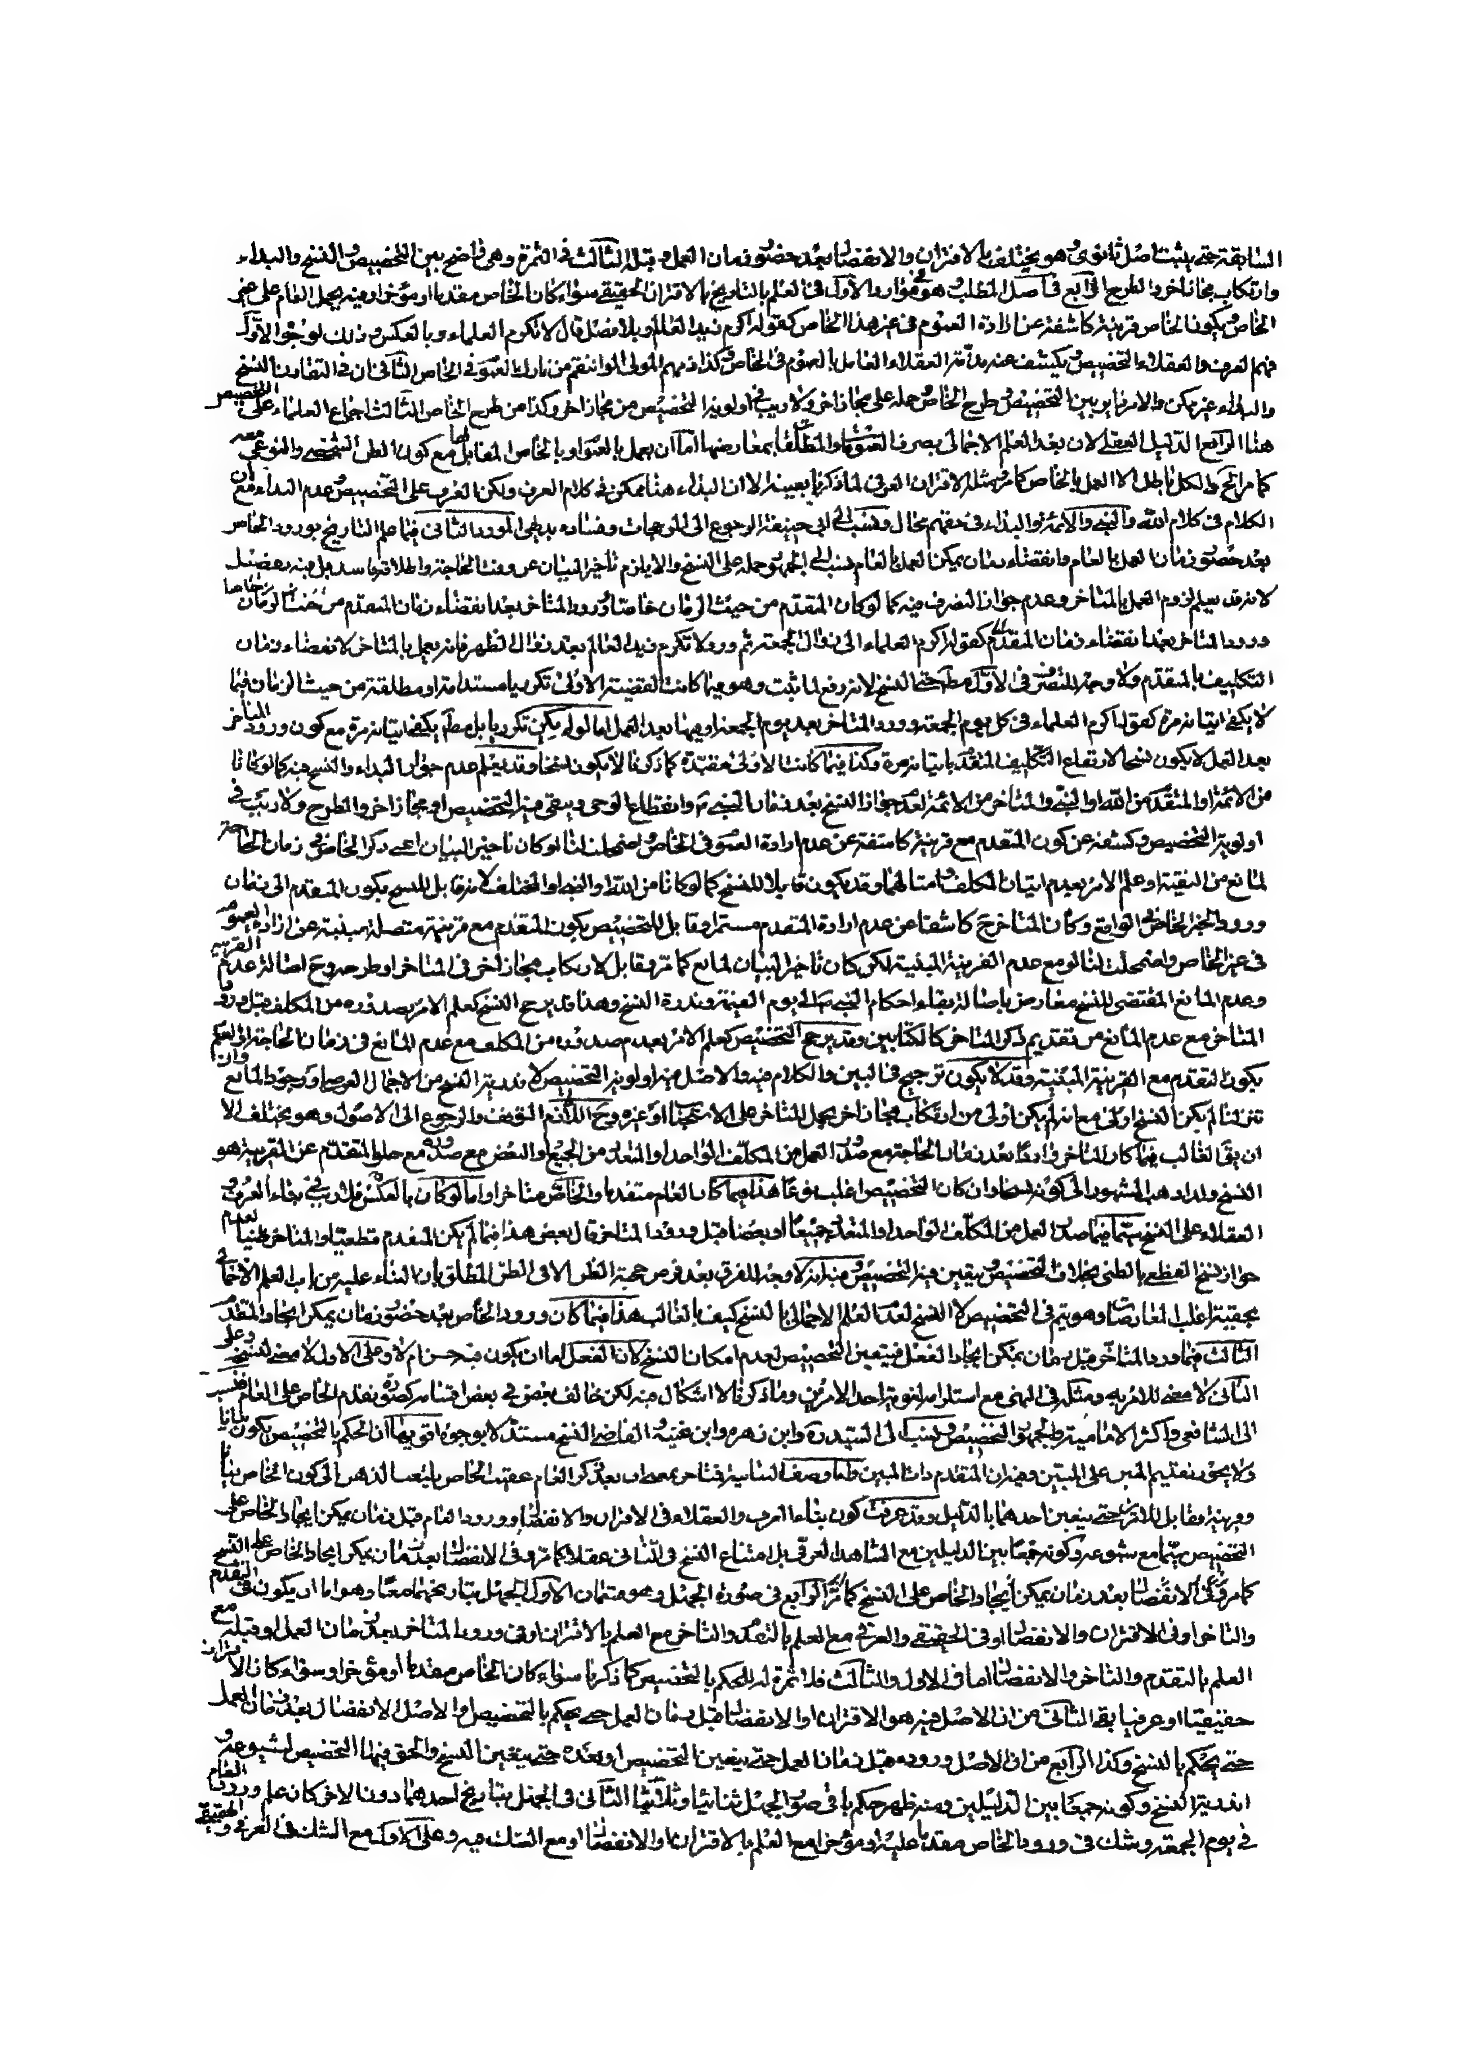 السابقة حتى يثبت اصل ثانوى و هو يختلف بالاقتران والانفصال بعد حضور زمان العمل و قبله الثالث فى الثمرة وهى واضح بين التخصيص و النسخ والبداء
وارتكاب مجاز اخر والطرح الرابع فى اصل المطلب و هو فى موارد الأول فى العلم بالتاريخ بالاقتران الحقيقى سواء كان الخاص مقدما او مؤخرا وفيه يحمل العام على غير
الخاص و يكون الخاص قرينة كاشفة عن ارادة العموم فى غير هذا الخاص كقوله اكرم زيد العالم وبلا فصل قال لا تكرم العلماء وبالعكس وذلك لوجوه الأول
فهم العرف والعقلاء التخصيص يكشف عنه مذمة العقلاء العامل بالعموم فى الخاص و كذا ذمهم المولى لو انتقم من تارك العموم فى الخاص الثانى ان فى التقارن النسخ
والبداء غير ممكن والامر دائر بين التخصيص و طرح الخاص و حمله على مجاز اخر ولا ريب فى اولوية التخصيص من مجاز اخر وكذا من طرح الخاص الثالث اجماع العلماء على التخصيص
هنا الرابع الدليل العقلى لان بعد العلم الاجمالى بصرف العمومات والمطلقات بمعارضها اما ان يعمل بالعموم او بالخاص المقابل لها مع كون الظن الشخصى والنوعى معه
كما مر الخ والكل باطل الا العمل بالخاص كما مر و مثله الاقتران العرفى لما ذكرنا بعينه الا ان البداء هنا ممكن فى كلام العرف ولكن العرف على التخصيص و عدم البداء مع ان
الكلام فى كلام الله والنبى والائمة والبداء فى حقهم محال و نسب الى ابى حنيفة الرجوع الى المرجحات وفساده بديهى المورد الثانى فيما علم التاريخ بورود الخاص
بعد حضور زمان العمل بالعام وانقضاء زمان يمكن العمل بالعام نسب الى الجمهور حمله على النسخ والا يلزم تاخير البيان عن وقت الحاجة واطلاقه فاسد بل فيه تفصيل
لانه قد يعلم لزوم العمل بالمتاخر وعدم جواز التصرف فيه كما لو كان المتقدم من حيث الزمان خاصا و ورود المتاخر بعد انقضاء زمان المتقدم من حيث الزمان خاصا
ورود المتاخر بعد انقضاء زمان المقدم كقوله اكرم العلماء الى زوال الجمعة ثم ورد لا تكرم زيد العالم بعد زوال الظهر فانه يعمل بالمتاخر لانقضاء زمان
التكليف بالمتقدم ولا وجه للتصرف فى الأول مط حتى النسخ لانه رفع لما ثبت وهو فيما كانت القضية الاولى تكريريا مستداما او مطلقة من حيث الزمان فيما
لا يكفى اتيانه مرة كقوله اكرم العلماء فى كل يوم الجمعة و ورود المتاخر بعد يوم الجمعة او فيها بعد العمل اما لو لم يكن تكريريا بل مط يكفى اتيانه مرة مع كون ورود المتاخر
بعد العمل لا يكون نسخا لارتفاع التكليف المتقدم باتيانه مرة وكذا فيما كانت الاولى مقيدة كما ذكرنا لا يكون نسخا وقد يعلم عدم جواز البداء والنسخ فيه كما لو كانا
من الائمة او المتقدم من الله او النبى والمتاخر من الائمة لعدم جواز النسخ بعد زمان النبى و انقطاع الوحى ويبقى فيه التخصيص او مجاز اخر والطرح ولا ريب فى
اولوية التخصيص وكشفه عن كون المتقدم مع قرينة كاشفة عن عدم ارادة العموم فى الخاص و اضمحلت لنا لو كان تاخير البيان اعنى ذكر الخاص فى زمان الحاجة
لمانع من التقية او علم الامر بعدم اتيان المكلف و امثالهما وقد يكون قابلا للنسخ كما لو كانا من الله او النبى او المختلف لانه قابل للنسخ بكون المتقدم الى زمان
ورود الخبر الخاص فى الواقع وكان المتاخر ح كاشفا عن عدم ارادة المتقدم مستمرا وقابل للتخصيص بكون المتقدم مع قرينة متصلة مبينة عن ارادة العموم
فى غير الخاص واضمحلت لنا لو مع عدم القرينة المبينة لكن كان تاخير البيان لمانع كما مر وقابل لارتكاب مجاز اخر فى المتاخر او طرحه وح اصالة عدم القرينة
وعدم المانع المقتضى للنسخ معارض باصالة بقاء احكام النبى الى يوم القيمة وندرة النسخ وهذا قد يرجح النسخ كعلم الامر بصدوره من المكلف قبل ورود
المتاخر مع عدم المانع من تقديم ذكر المتاخر كالكتابين وقد يرجح التخصيص كعلم الامر بعدم صدوره من المكلف مع عدم المانع فى زمان الحاجة او العلم
بكون المتقدم مع القرينة المبينة وقد لا يكون ترجيح فى البين والكلام فيه والاصل فيه اولوية التخصيص لا ندرية النسخ من الاجمال العرضى او وجود المانع وان
تنزلنا لم يكن النسخ اولى مع انه لم يكن اولى من ارتكاب مجاز اخر بحمل المتاخر على الاستحباب او غيره وح اللازم التوقف والرجوع الى الاصول وهو يختلف الا
ان يق الغالب فيما كان المتاخر واردا بعد زمان الحاجة مع صدور العمل من المكلف الواحد او المتعدد من الجميع او البعض مع صدوره مع خلو المتقدم عن القرينة هو
النسخ ولذا ذهب المشهور الى كونه نسخا وان كان التخصيص اغلب نوعا هذا فيما كان العام متقدما والخاص متاخرا واما لو كان بالعكس فلا ريب فى بقاء العرف و
العقلاء على النسخ سيما فيما صدر العمل من المكلف الواحد او المتعدد جميعا او بعضا قبل ورود المتاخر قال بعض هذا فيما لم يكن المتقدم قطعيا والمتاخر ظنيا لعدم
جواز نسخ القطعى بالظنى بخلاف التخصيص و يتعين فيه التخصيص و فيه انه لا وجه للفرق بعد فرض حجية الظن الا فى الظن المطلق بان البناء عليه من باب العلم الاجمالى
بحقية اغلب المعارضات وهو يتم فى التخصيص لا النسخ لعدم العلم الاجمالى بالنسخ كيف بالغالب هذا فيما كان ورود الخاص بعد حضور زمان يمكن ايجاد المتقدم
الثالث فيما ورد المتاخر قبل زمان يمكن ايجاد الفعل فيتعين التخصيص لعدم امكان النسخ لان الفعل اما ان يكون فيه حسن ام لا وعلى الاول لا معنى لنسخه وعلى
الثانى لا معنى للامر به ومثله فى النهى مع استلزامه لغوية احد الامرين وما ذكرنا لا اشكال فيه لكن خالف بعض فى بعض اقسامه كصورة تقدم الخاص على العام فنسب
الى الشافعى واكثر الامامية والجمهور التخصيص و نسب الى السيد ره وابن زهره وابن عقبه و القاضى النسخ مستدلا بوجوه اقويها ان الحكم بالتخصيص يكون بيانا
ولا يجوز تقديم المبين على المبين وفيه ان المتقدم ذات المبين واما وصف البيانية فتاخر بعد ذكر العام عقيب الخاص يلتفت الذهن الى كون الخاص بيانا
وقرينة مقابل للامرين حتى يتعين احدهما بالدليل وقد عرفت كون بناء العرف والعقلاء فى الاقتران والانفصال وورود العام قبل زمان يمكن ايجاد الخاص على
التخصيص سيما مع شيوعه وكونه جمعا بين الدليلين مع الشاهد العرفى بل امتناع النسخ فى الثانى عقلا كما مر وفى الانفصال بعد زمان يمكن ايجاد الخاص على النسخ
كما مر وفى الانفصال بعد زمان يمكن ايجاد الخاص على النسخ كما مر الرابع فى صورة الجهل وهو قسمان الأول الجهل بتاريخهما معا وهو اما ان يكون فى التقدم
والتاخر او فى الاقتران والانفصال او فى الحقيقى والعرفى مع العلم بالتقدم والتاخر مع العلم بالاقتران او فى ورود المتاخر بعد زمان العمل او قبله مع
العلم بالتقدم والتاخر والانفصال اما فى الاول والثالث فلا ثمرة له للحكم بالتخصيص كما ذكرنا سواء كان الخاص مقدما او مؤخرا وسواء كان الاقتران
حقيقيا او عرفيا بقى الثانى من ان الاصل فيه هو الاقتران او الانفصال قبل زمان العمل حتى يحكم بالتخصيص او الاصل الانفصال بعد زمان العمل
حتى يحكم بالنسخ وكذا الرابع من ان الاصل وروده قبل زمان العمل حتى يتعين التخصيص او بعده حتى يتعين النسخ والحق فيهما التخصيص لشيوعه و
اندرية النسخ وكونه جمعا بين الدليلين ومنه ظهر حكم باقى صور الجهل ثنائيا وثلاثيا الثانى فى الجهل بتاريخ احدهما دون الاخر كان علم ورود العام
فى يوم الجمعة وشك فى ورود الخاص مقدما عليه او مؤخرا مع العلم بالاقتران او الانفصال او مع الشك فيه وعلى الأول مع الشك فى العرفى والحقيقى